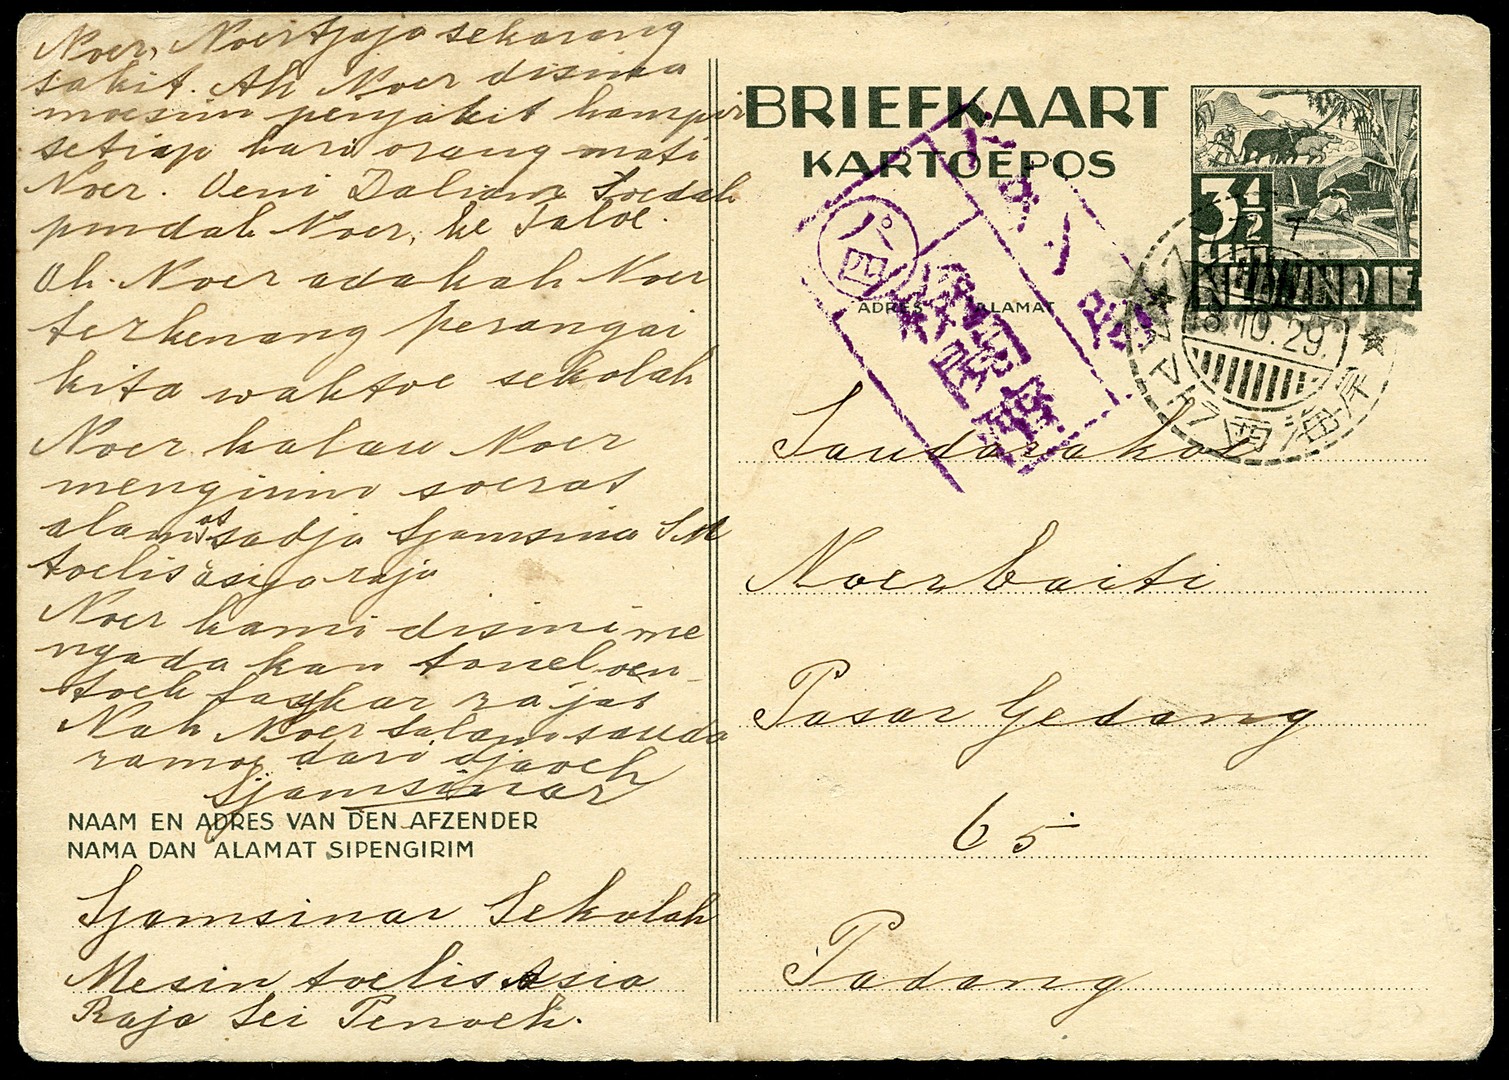 Noer, Noertjaja sekarang
sakit. Ah Noer disini
moesim penjakit hampir
setiap hari orang mati
Noer. Oeni Dalima Soedah
pindah Noer, ke Taloe.
Oh. Noer adakah Noer
terkenang perangai
kita waktoe sekolah
Noer kalau Noer
mengirim soerat
alamat sadja Sjamsinar S.M
toelis asia raja
Noer kami disini me
ngada kan toneel oen-
toek lasjkar rajat
Nah Noer salam sauda
ramoe dari djaoeh
Sjamsinar
NAAM EN ADRES VAN DEN AFZENDER
NAMA DAN ALAMAT SIPENGIRIM
Sjamsinar Sekolah
Mesin toelis Asia
Raja Sei Penoeh.
BRIEFKAART
KARTOEPOS
3½
CENT
NED. INDIE
ADRES ALAMAT
パ
四
検閲
8.10.29.
西海岸
Saudarakoe
Noerbaiti
Pasar Gedang
65
Padang